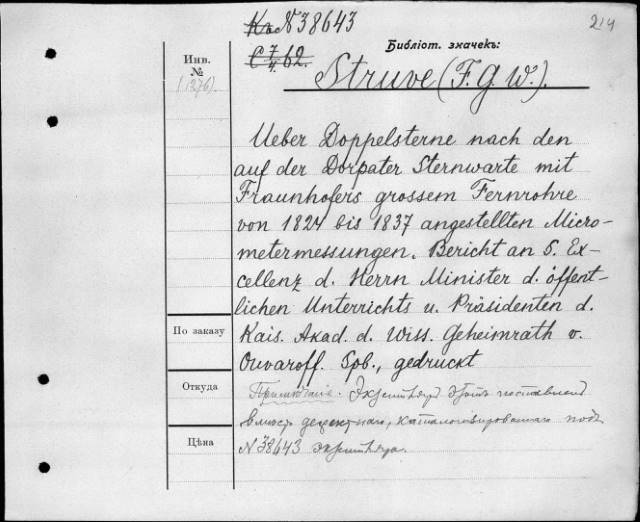 Къ N 38643
214
Библіот. значекъ:
C 7/4 62.
Инв.
№
(1276)
Struve (F. G. W.).
Ueber Doppelsterne nach den
auf der Dorpater Sternwarte mit
Fraunhofers grossem Fernrohre
von 1824 bis 1837 angestellten Micro-
metermessungen. Bericht an S. Ex-
cellenz d. Herrn Minister d. öffent-
lichen Unterrichts u. Präsidenten d.
Kais. Akad. d. Wiss. Geheimrath v.
Ouvaroff. Spb., gedruckt
По заказу
Откуда
Цѣна
Примѣчаніе. Экземпляръ этотъ поставленъ
вмѣсто дефектнаго, каталогизированнаго подъ
N 38643 экземпляра.